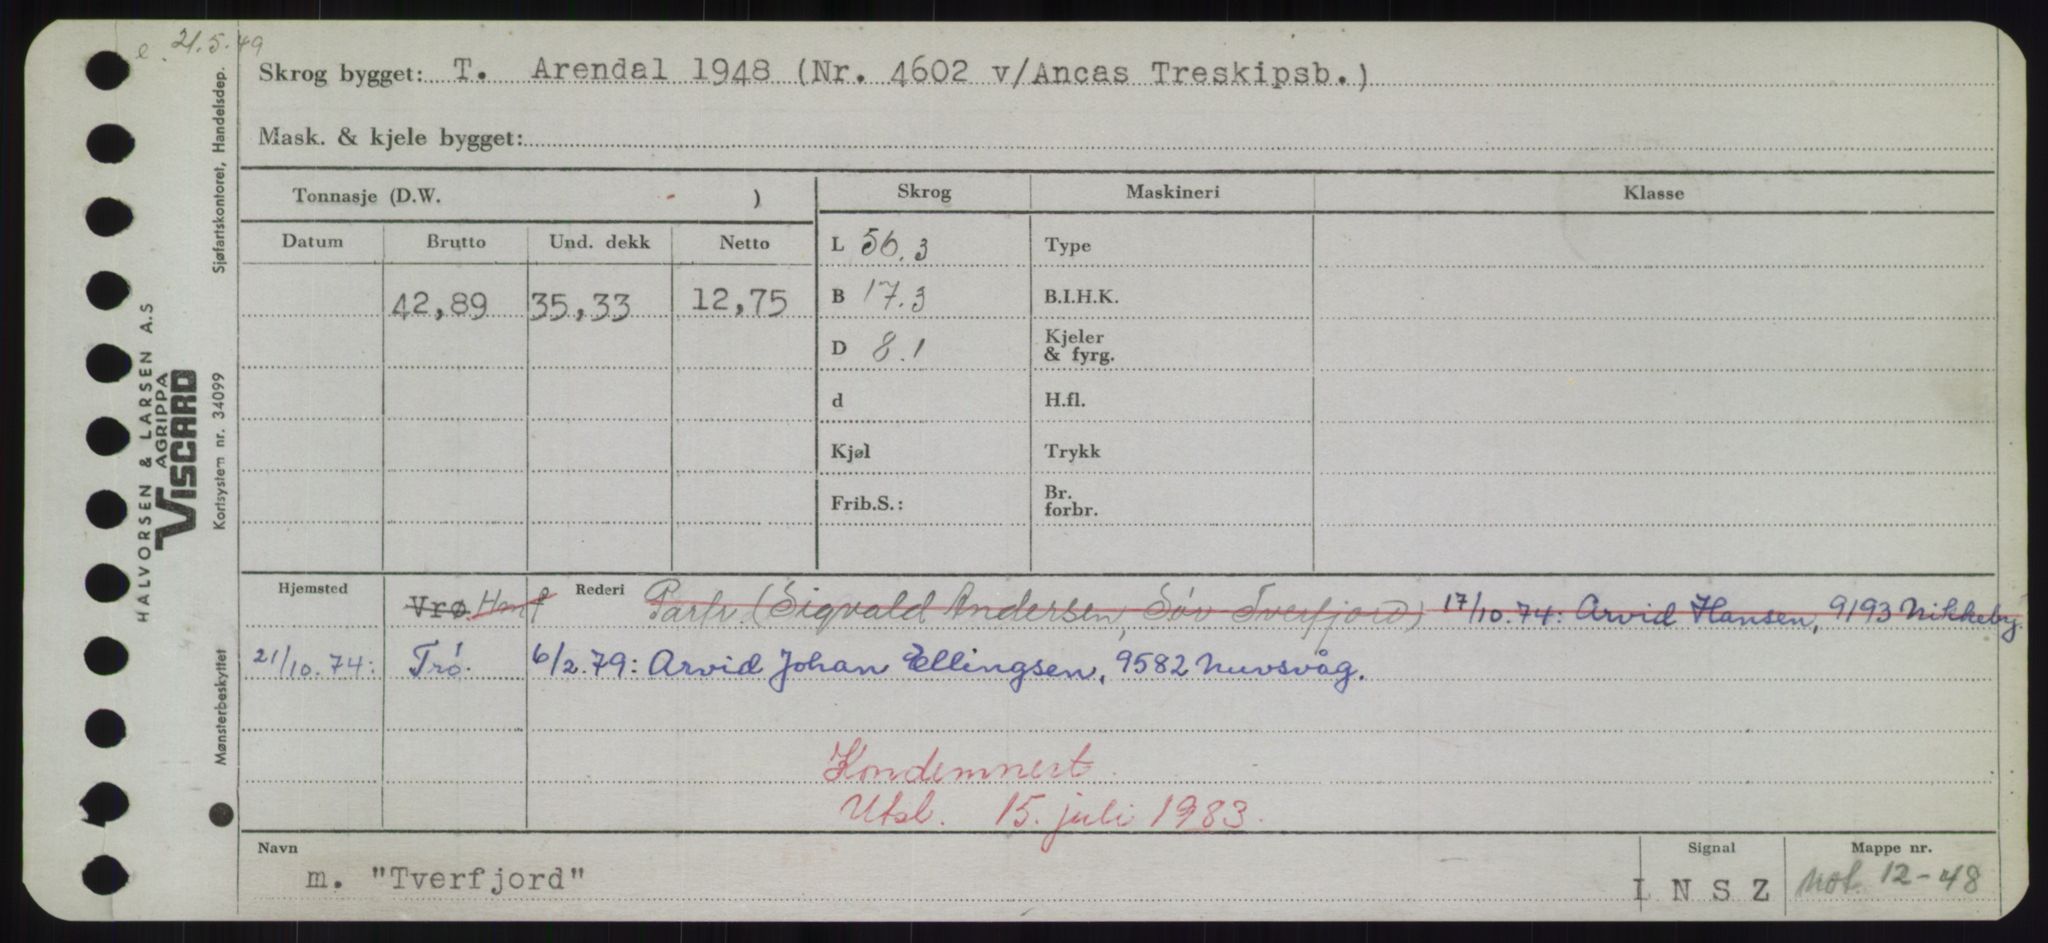 e. 21.5.49
Skrog bygget: T. Arendal 1948 (Nr. 4602 v/Ancas Treskipsb.)
Mask. & kjele bygget:
Tonnasje (D.W. - ) Skrog Maskineri Klasse
Datum Brutto Und. dekk Netto L 56.3 Type
42,89 35,33 12,75 B 17.3 B.I.H.K.
D 8.1 Kjeler & fyrg.
d H.fl.
Kjøl Trykk
Frib.S.: Br. forbr.
Hjemsted Vrø. Hmf Rederi Partr. (Sigvald Andersen, Söv Tverfjord) 17/10.74: Arvid Hansen, 9193 Nikkeby.
21/10.74: Trö. 6/2.79: Arvid Johan Ellingsen, 9582 Nuvsvåg.
Kondemnert.
Utsl. 15. juli 1983.
Navn Signal Mappe nr.
m. "Tverfjord" L N S Z Not. 12-48
HALVORSEN & LARSEN A.S
AGRIPPA
VISCARD
Sjøfartskontoret, Handelsdep.
Kortsystem nr. 34099
Mønsterbeskyttet